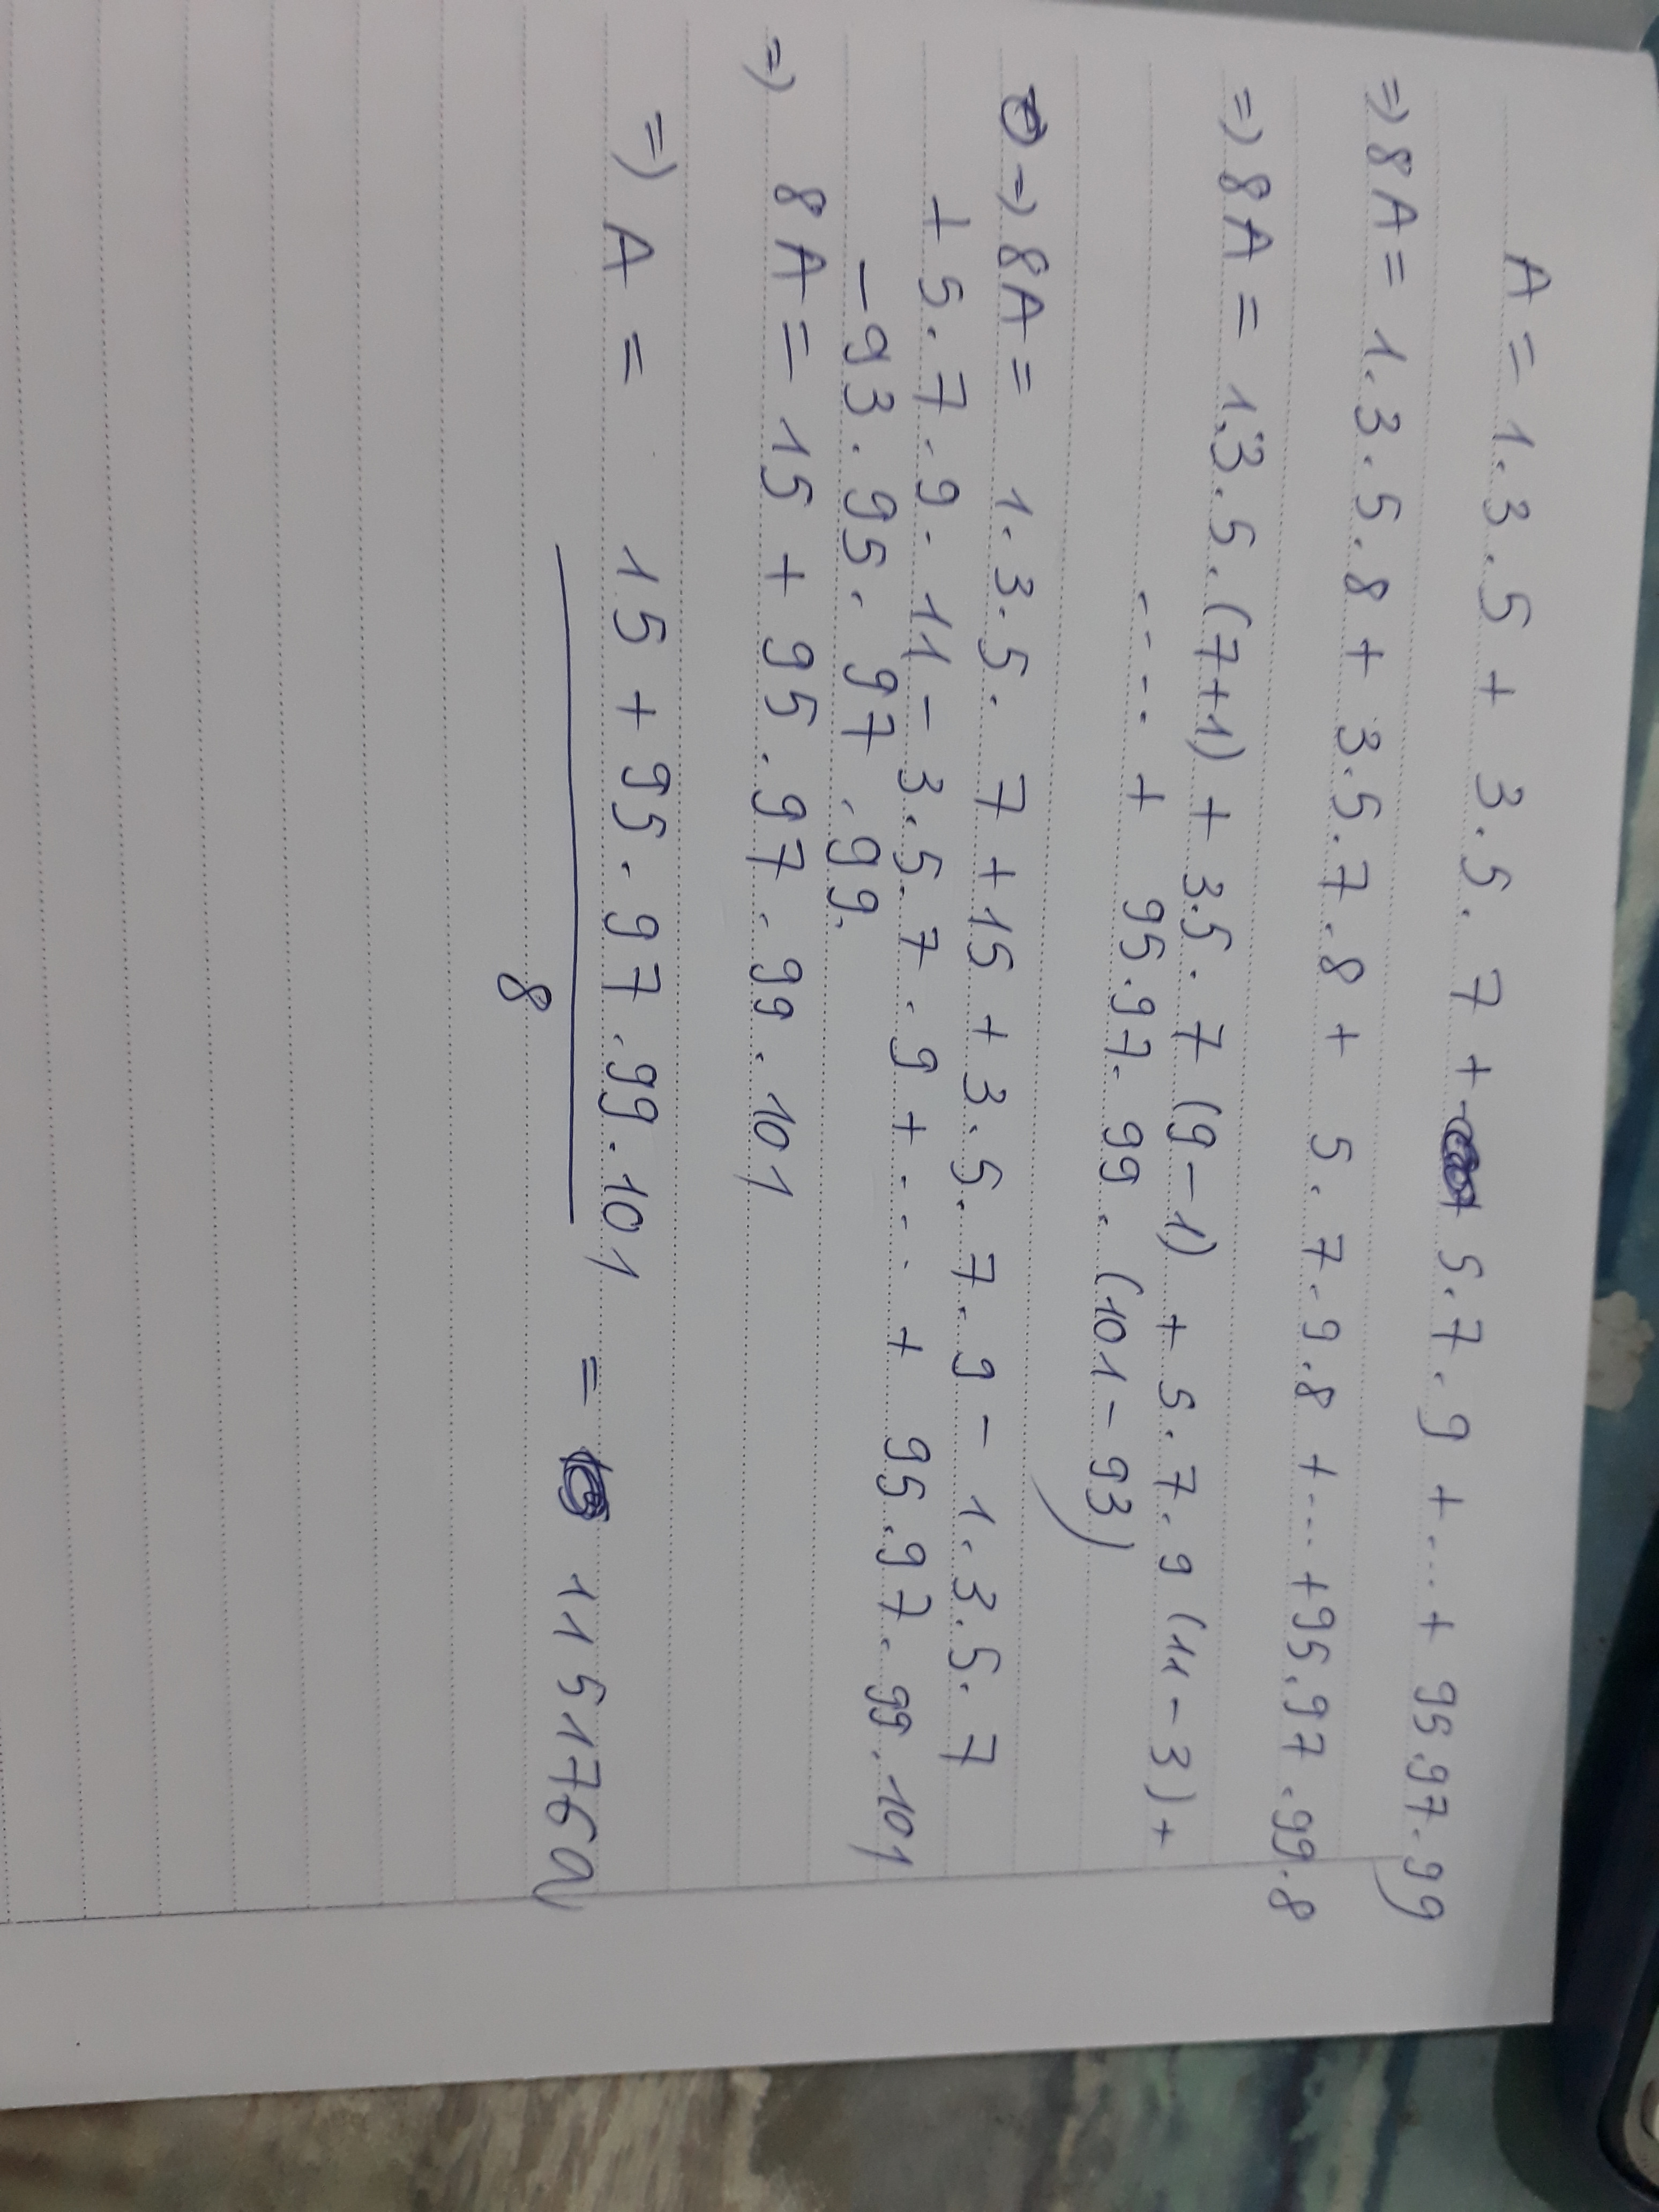 A = 1.3.5 + 3.5.7 + 5.7.9 + ... + 95.97.99
=> 8A = 1.3.5.8 + 3.5.7.8 + 5.7.9.8 + ... + 95.97.99.8
=> 8A = 1.3.5.(7+1) + 3.5.7 (9-1) + 5.7.9 (11-3) +
.... + 95.97.99.(101-93)
=> 8A = 1.3.5.7 + 15 + 3.5.7.9 - 1.3.5.7
+ 5.7.9.11 - 3.5.7.9 + .... + 95.97.99.101
- 93.95.97.99.
=> 8A = 15 + 95.97.99.101
=> A = 15 + 95.97.99.101 = 11517600
8